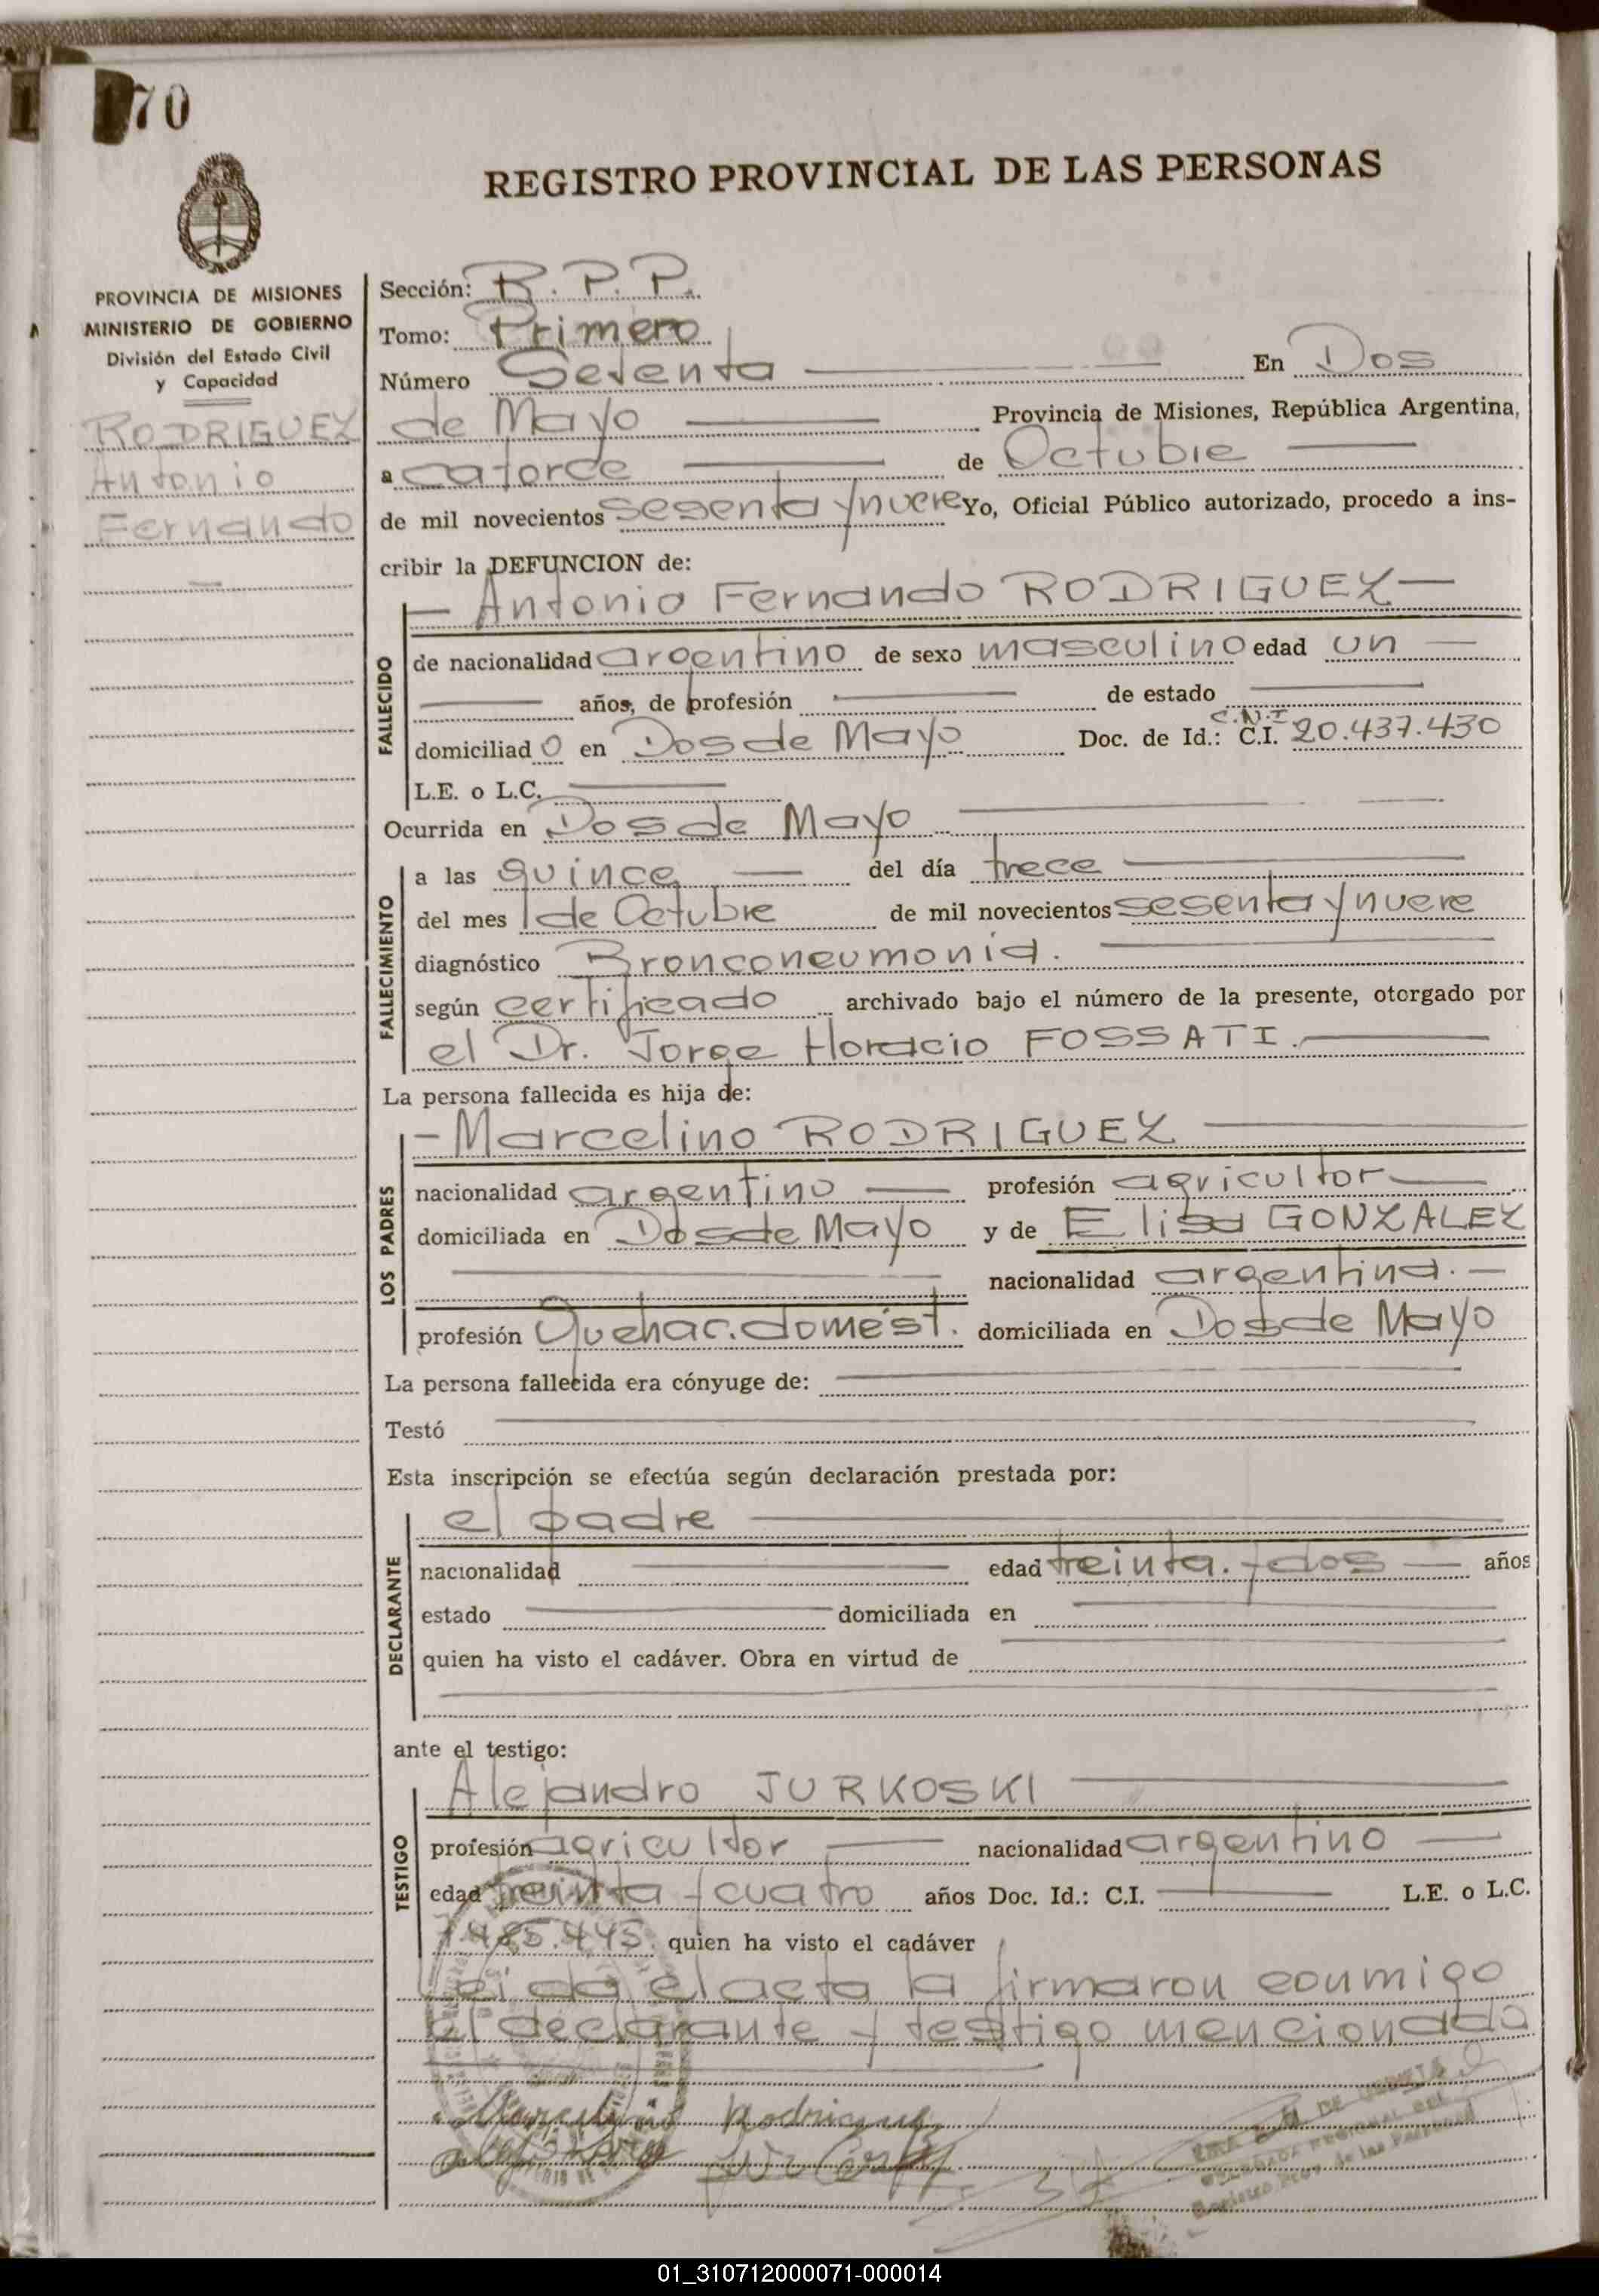 70
REGISTRO PROVINCIAL DE LAS PERSONAS
PROVINCIA DE MISIONES
MINISTERIO DE GOBIERNO
División del Estado Civil
y Capacidad
RODRIGUEZ
Antonio
Fernando
Sección: R. P. P.
Tomo: Primero
Número Setenta En Dos
de Mayo Provincia de Misiones, República Argentina,
a catorce de Octubre
de mil novecientos sesenta y nueve Yo, Oficial Público autorizado, procedo a ins-
cribir la DEFUNCION de:
FALLECIDO
Antonio Fernando RODRIGUEZ
de nacionalidad argentino de sexo masculino edad un
años, de profesión de estado
domiciliado en Dos de Mayo Doc. de Id.: C.I. C.N.I 20.437.430
L.E. o L.C.
Ocurrida en Dos de Mayo
FALLECIMIENTO
a las quince del día trece
del mes de Octubre de mil novecientos sesenta y nueve
diagnóstico Bronconeumonia.
según certificado archivado bajo el número de la presente, otorgado por
el Dr. Jorge Horacio FOSSATI.
La persona fallecida es hija de:
LOS PADRES
Marcelino RODRIGUEZ
nacionalidad argentino profesión agricultor
domiciliada en Dos de Mayo y de Elisa GONZALEZ
nacionalidad argentina.
profesión Quehac. domést. domiciliada en Dos de Mayo
La persona fallecida era cónyuge de:
Testó
Esta inscripción se efectúa según declaración prestada por:
DECLARANTE
el padre
nacionalidad edad treinta y dos años
estado domiciliada en
quien ha visto el cadáver. Obra en virtud de
ante el testigo:
TESTIGO
Alejandro JURKOSKI
profesión agricultor nacionalidad argentino
edad treinta y cuatro años Doc. Id.: C.I. L.E. o L.C.
7.485.445. quien ha visto el cadáver
Leida el acta la firmaron conmigo
el declarante y testigo mencionado
Rodriguez
01_310712000071-000014